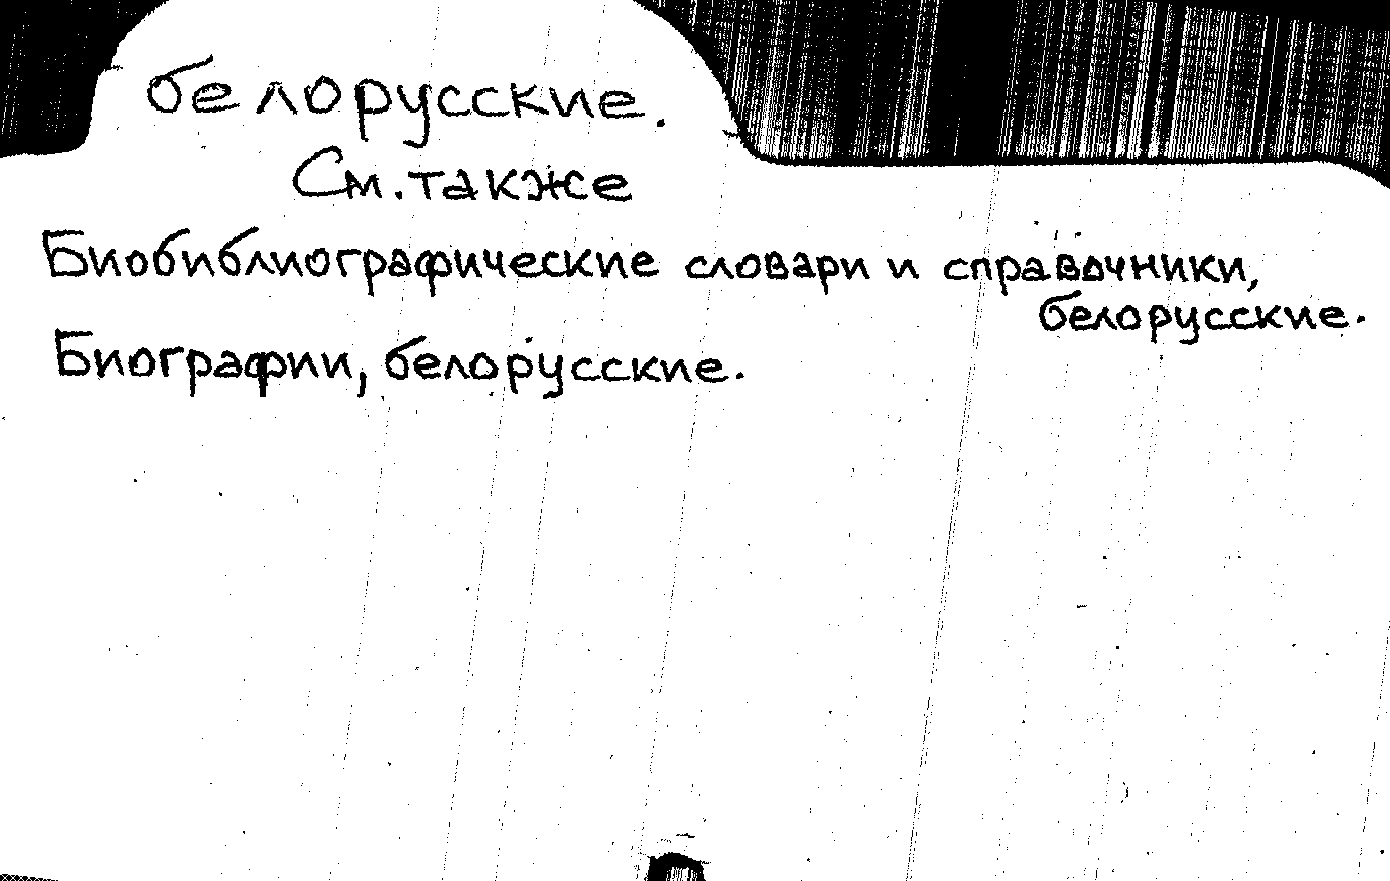 белорусские.
См. также
Биобиблиографические словари и справочники,
белорусские.
Биографии, белорусские.